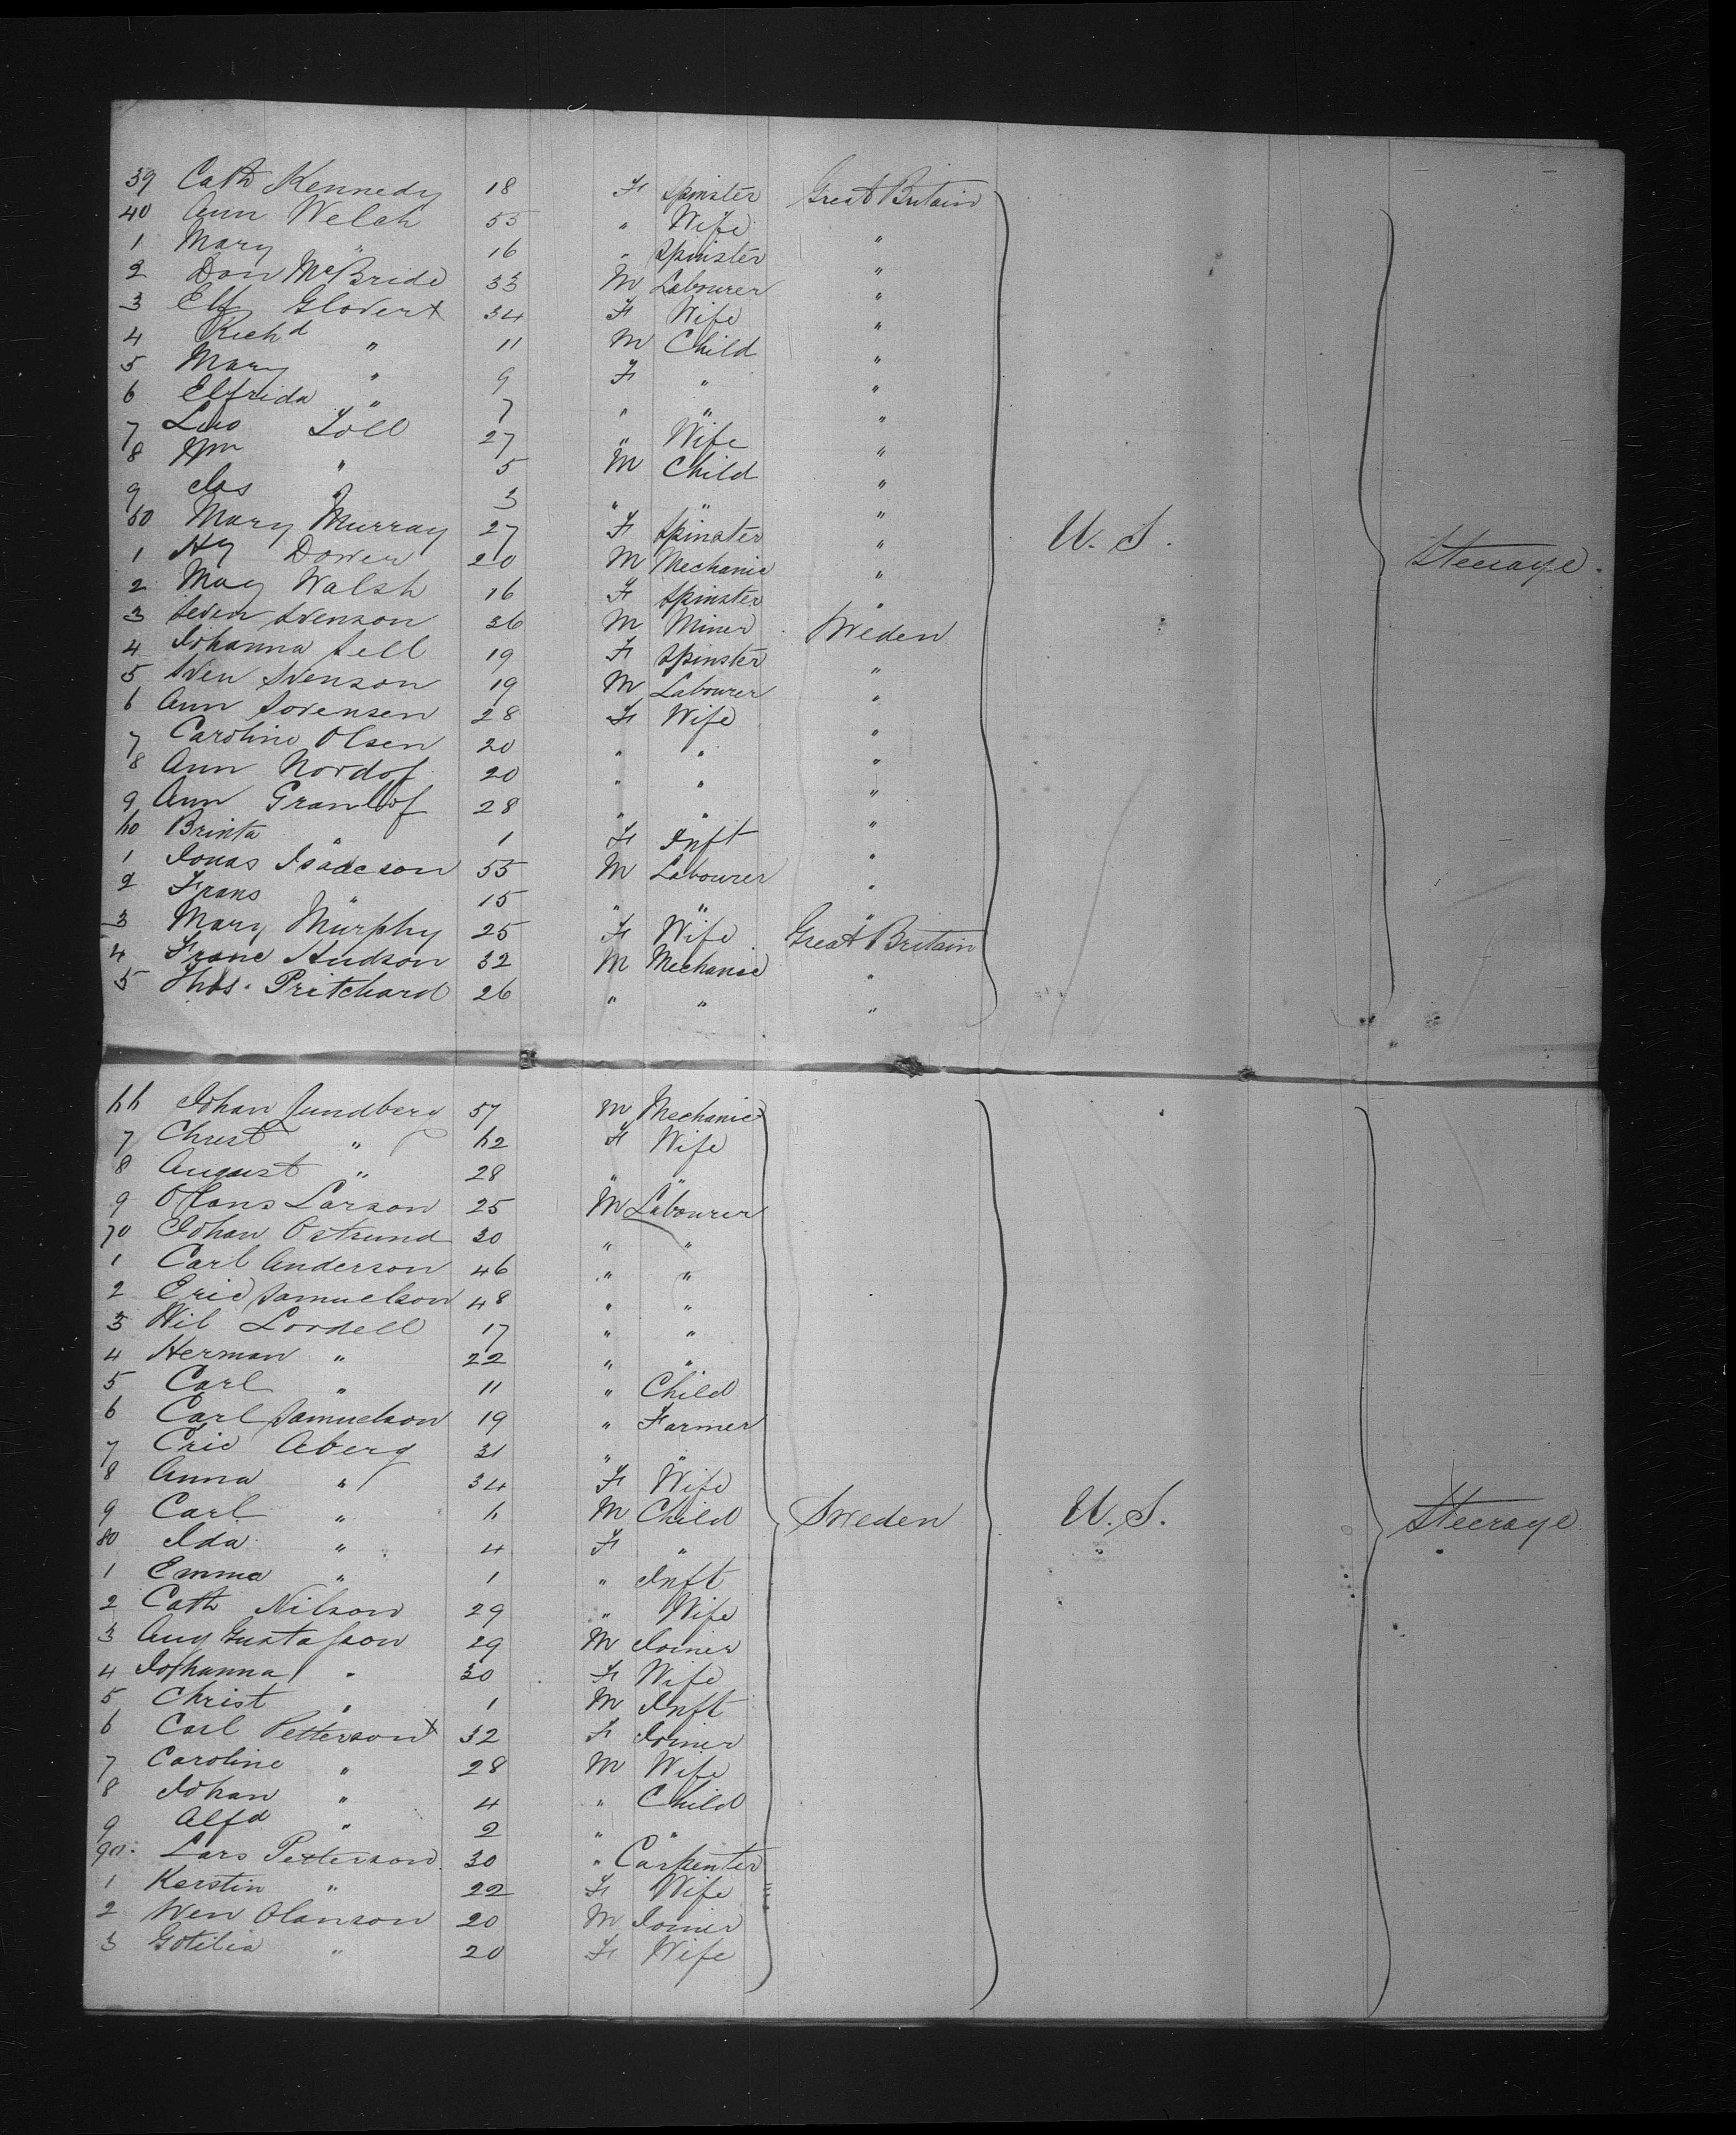 39 Cath Kennedy 18 F Spinster Great Britain
40 Ann Welch 55 " Wife "
1 Mary " 16 " Spinster "
2 Dan McBride 33 M Labourer "
3 Elf Glover x 34 F Wife "
4 Richd " 11 M Child "
5 Mary " 9 F " "
6 Elfrida " 7 " " "
7 27 " Wife "
8 Wm " 5 M Child "
9 Jas " 3 " " "
50 Mary Murray 27 F Spinster "
1 Hy Dower 20 M Mechanic "
2 Mag Walsh 16 F Spinster "
3 Seven Svenson 36 M Miner Sweden
4 Johanna Sell 19 F Spinster "
5 Sven Svenson 19 M Labourer "
6 Ann Sorensen 28 F Wife "
7 Caroline Olsen 20 " " "
8 Ann Nordof 20 " " "
9 Ann Granlof 28 " " "
60 Brinta " 1 F Inft "
1 Jonas Isaacson 55 M Labourer "
2 Frans " 15 " " "
3 Mary Murphy 25 F Wife Great Britain
4 Franc Hudson 32 M Mechanic "
5 Thos. Pritchard 26 " " "
U. S.
Steerage.
66 Johan Lundberg 57 M Mechanic
7 Christ " 62 F Wife
8 August " 28 " "
9 Olans Larson 25 M Labourer
70 Johan Ostrund 30 " "
1 Carl Anderson 46 " "
2 Eric Samuelson 48 " "
3 Wil Lordell 17 " "
4 Herman " 22 " "
5 Carl " 11 " Child
6 Carl Samuelson 19 " Farmer
7 Eric Aberg 31 " "
8 Anna " 34 F Wife
9 Carl " 6 M Child
80 Ida " 4 F "
1 Emma " 1 " Inft
2 Cath Nilson 29 " Wife
3 Aug Gustafson 29 M Joiner
4 Johanna " 30 F Wife
5 Christ " 1 M Inft
6 Carl Petterson x 32 F Joiner
7 Caroline " 28 M Wife
8 Johan " 4 " Child
9 Alfd " 2 " "
90. Lars Petterson 30 " Carpenter
1 Kerstin " 22 F Wife
2 Wen Olanson 20 M Joiner
3 Gotilia " 20 F Wife
Sweden
U. S.
Steerage